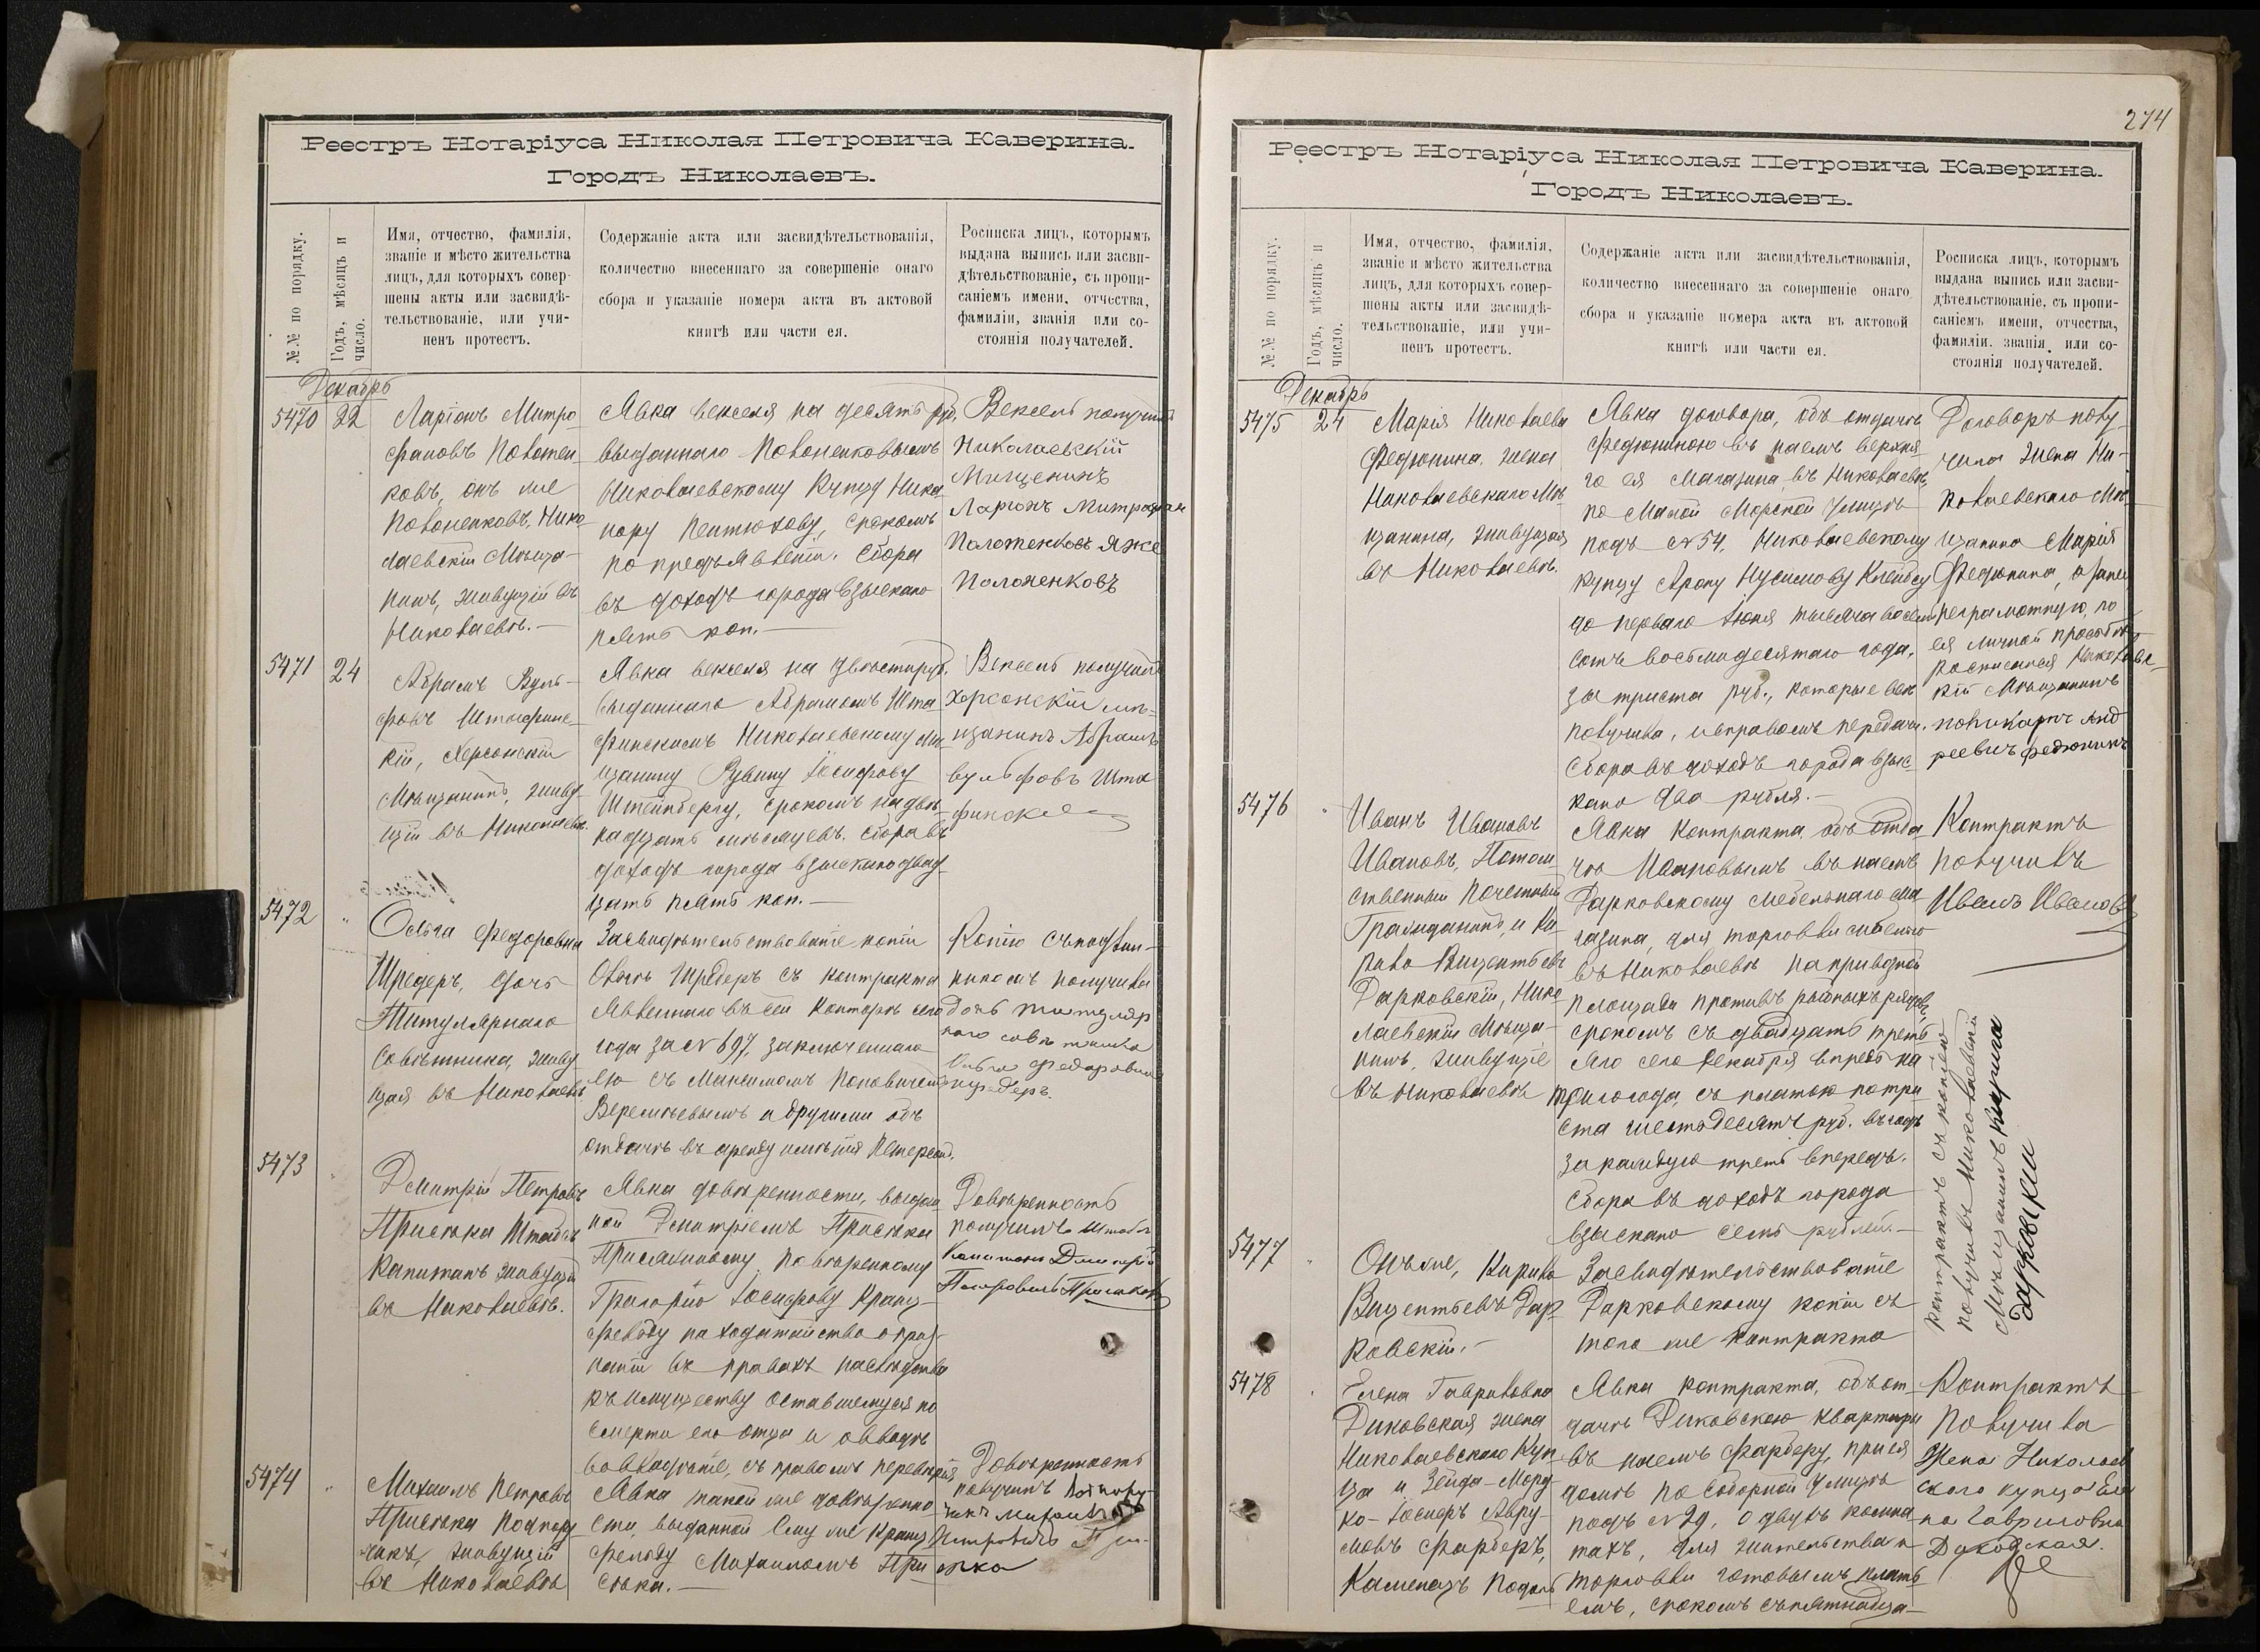 Реестръ Нотаріуса Николая Петровича Каверина.
Городъ Николаевъ.
№№ по порядку.
Годъ, мѣсяцъ и
число.
Имя, отчество, фамилія,
званіе и мѣсто жительства
лицъ, для которыхъ совер-
шены акты или засвидѣ-
тельствованіе, или учи-
ненъ протестъ.
Содержаніе акта или засвидѣтельствованія,
количество внесеннаго за совершеніе онаго
сбора и указаніе номера акта въ актовой
книгѣ или части ея.
Росписка лицъ, которымъ
выдана выпись или засви-
дѣтельствованіе, съ пропи-
саніемъ имени, отчества,
фамиліи, званія или со-
стоянія получателей.
Декабрь
5470
22
Ларіонъ Митро
фановъ
ковъ, онъ же
Нико
лаевскій Мѣща-
нинъ, живущій въ
Николаевѣ.-
Явка векселя на десять руб,
выданнаго
Николаевскому Купцу Ника
нору срокомъ
по предъявленіи. Сбора
въ доходъ города взыскано
пять коп.-
Вексель получилъ
Николаевскій
Мѣщенинъ
Ларіонъ Митрофан
5471
24
Абрамъ Вуль-
фовъ
кій, Херсонскій
Мѣщанинъ, живу-
щій въ Николаевѣ.
Явка векселя на двѣсти руб.
выданнаго Абрамомъ Шта
финскимъ Николаевскому мѣ
щанину Рувину Іосифову
Штейнбергу, срокомъ на двѣ
надцать мѣсяцевъ. Сбора въ
доходъ города взыскано двад
цать пять коп.-
Вексель получилъ
Херсонскій мѣ-
щанинъ Абрамъ
вульфовъ Шта
финскій
5472
Ольга Федоровна
Шредеръ, дочь
Титулярнаго
Совѣтника, живу
щая въ Николаевѣ
Засвидѣтельствованіе копіи
Ольгѣ Шредеръ съ контракта
явленнаго въ сей Конторѣ сего
года за № 697, заключеннаго
ею съ Максимомъ
и другими объ
отдачѣ въ аренду имѣнія
Копію съ подлин-
никомъ получила
Дочь титуляр
наго совѣтника
Ольга Федоровна
Шредеръ.
5473
Дмитрій Петровъ
Присѣка Штабсъ
Капитанъ живущій
въ Николаевѣ.
Явка довѣренности, выдан
ной Дмитріемъ Присѣка
Присяжному повѣренному
Григорію Іосифову Кранц
фельду на ходатайство о приз-
наніи въ правахъ наслѣдства
къ имуществу оставшемуся по
смерти его отца и о вводѣ
во владѣніе, съ правомъ перевѣрія
Довѣренность
получилъ Штабсъ
Капитанъ Дмитрій
Петровичъ Присѣка
5474
Михаилъ Петровъ
Присѣка Подпору
чикъ, живущій
въ Николаевѣ
Явка такой же довѣренно
сти, выданной ему же Кранц
фельду Михаиломъ При
сѣка.-
Довѣренность
получилъ Подпору-
чикъ Михаилъ
Петровичъ При-
сѣка
274
Реестръ Нотаріуса Николая Петровича Каверина.
Городъ Николаевъ.
№№ по порядку.
Годъ, мѣсяцъ и
число.
Имя, отчество, фамилія,
званіе и мѣсто жительства
лицъ, для которыхъ совер-
шены акты или засвидѣ-
тельствованіе, или учи-
ненъ протестъ.
Содержаніе акта или засвидѣтельствованія,
количество внесеннаго за совершеніе онаго
сбора и указаніе номера акта въ актовой
книгѣ или части ея.
Росписка лицъ, которымъ
выдана выпись или засви-
дѣтельствованіе, съ пропи-
саніемъ имени, отчества,
фамиліи, званія или со-
стоянія получателей.
Декабрь
5475
24
Марія Николаева
Федюнина, жена
Николаевскаго Мѣ
щанина, живущая
въ Николаевѣ.
Явка договора, объ отдачѣ
Федюниною въ наемъ верхня
го ея магазина, въ Николаевѣ,
по Малой Морской улицѣ
подъ № 54, Николаевскому
купцу Арону Нусимову
до перваго Іюня тысяча восемь
сотъ восьмидесятаго года,
за триста руб., которые всѣ
получила, и съ правомъ передачи.
Сбора въ доходъ города взыс-
кано два рубля.-
Договоръ полу-
чила жена Ни-
колаевскаго Мѣ-
щанина Марія
Федюнина, а за нее
неграмотную, по
ея личной просьбѣ
росписался Николаевс-
кій Мѣщанинъ
поликарпъ Анд
реевичъ федюнинъ
5476
Иванъ Ивановъ
Ивановъ, Потом
ственный Почетный
Гражданинъ, и Ки
рилъ Викентьевъ
Дарковскій, Нико
лаевскій Мѣща-
нинъ, живущіе
въ Николаевѣ
Явка контракта, объ отда
чѣ Ивановымъ въ наемъ
Дарковскому мебельнаго ма
газина, для торговли мебелью
въ Николаевѣ на приводной
площади противъ рыбныхъ рядовъ
срокомъ съ двадцать треть
яго сего Декабря впредь на
три года, съ платою по три
ста шестьдесятъ руб. въ годъ
за каждую треть впередъ.
Сбора въ доходъ города
взыскано семь рублей.-
Контрактъ
получилъ
Иванъ Ивановъ
5477
Онъ же, Кирилъ
Викентьевъ Дар
ковскій.-
Засвидѣтельствованіе
Дарковскому копіи съ
того же контракта
контрактъ съ копіею
получилъ Николаевскій
Мѣщанинъ Кирилъ
Дарковскій
5478
Елена Гавриловна
Диковская жена
Николаевскаго Куп
ца и Зейда-Морд-
ко-Іосифъ Авру-
мовъ Фарберъ,
Каменецъ Подоль
Явка контракта, объ от-
дачѣ Диковскою квартиры
въ наемъ Фарберу, при ея
домѣ по Соборной улицѣ
подъ № 29, о двухъ комна
тахъ, для жительства и
торговли готовымъ плать
емъ, срокомъ съ пятнадца-
Контрактъ
Получила
Жена Николаев
скаго купца Еле
на Гавриловна
Диковская.